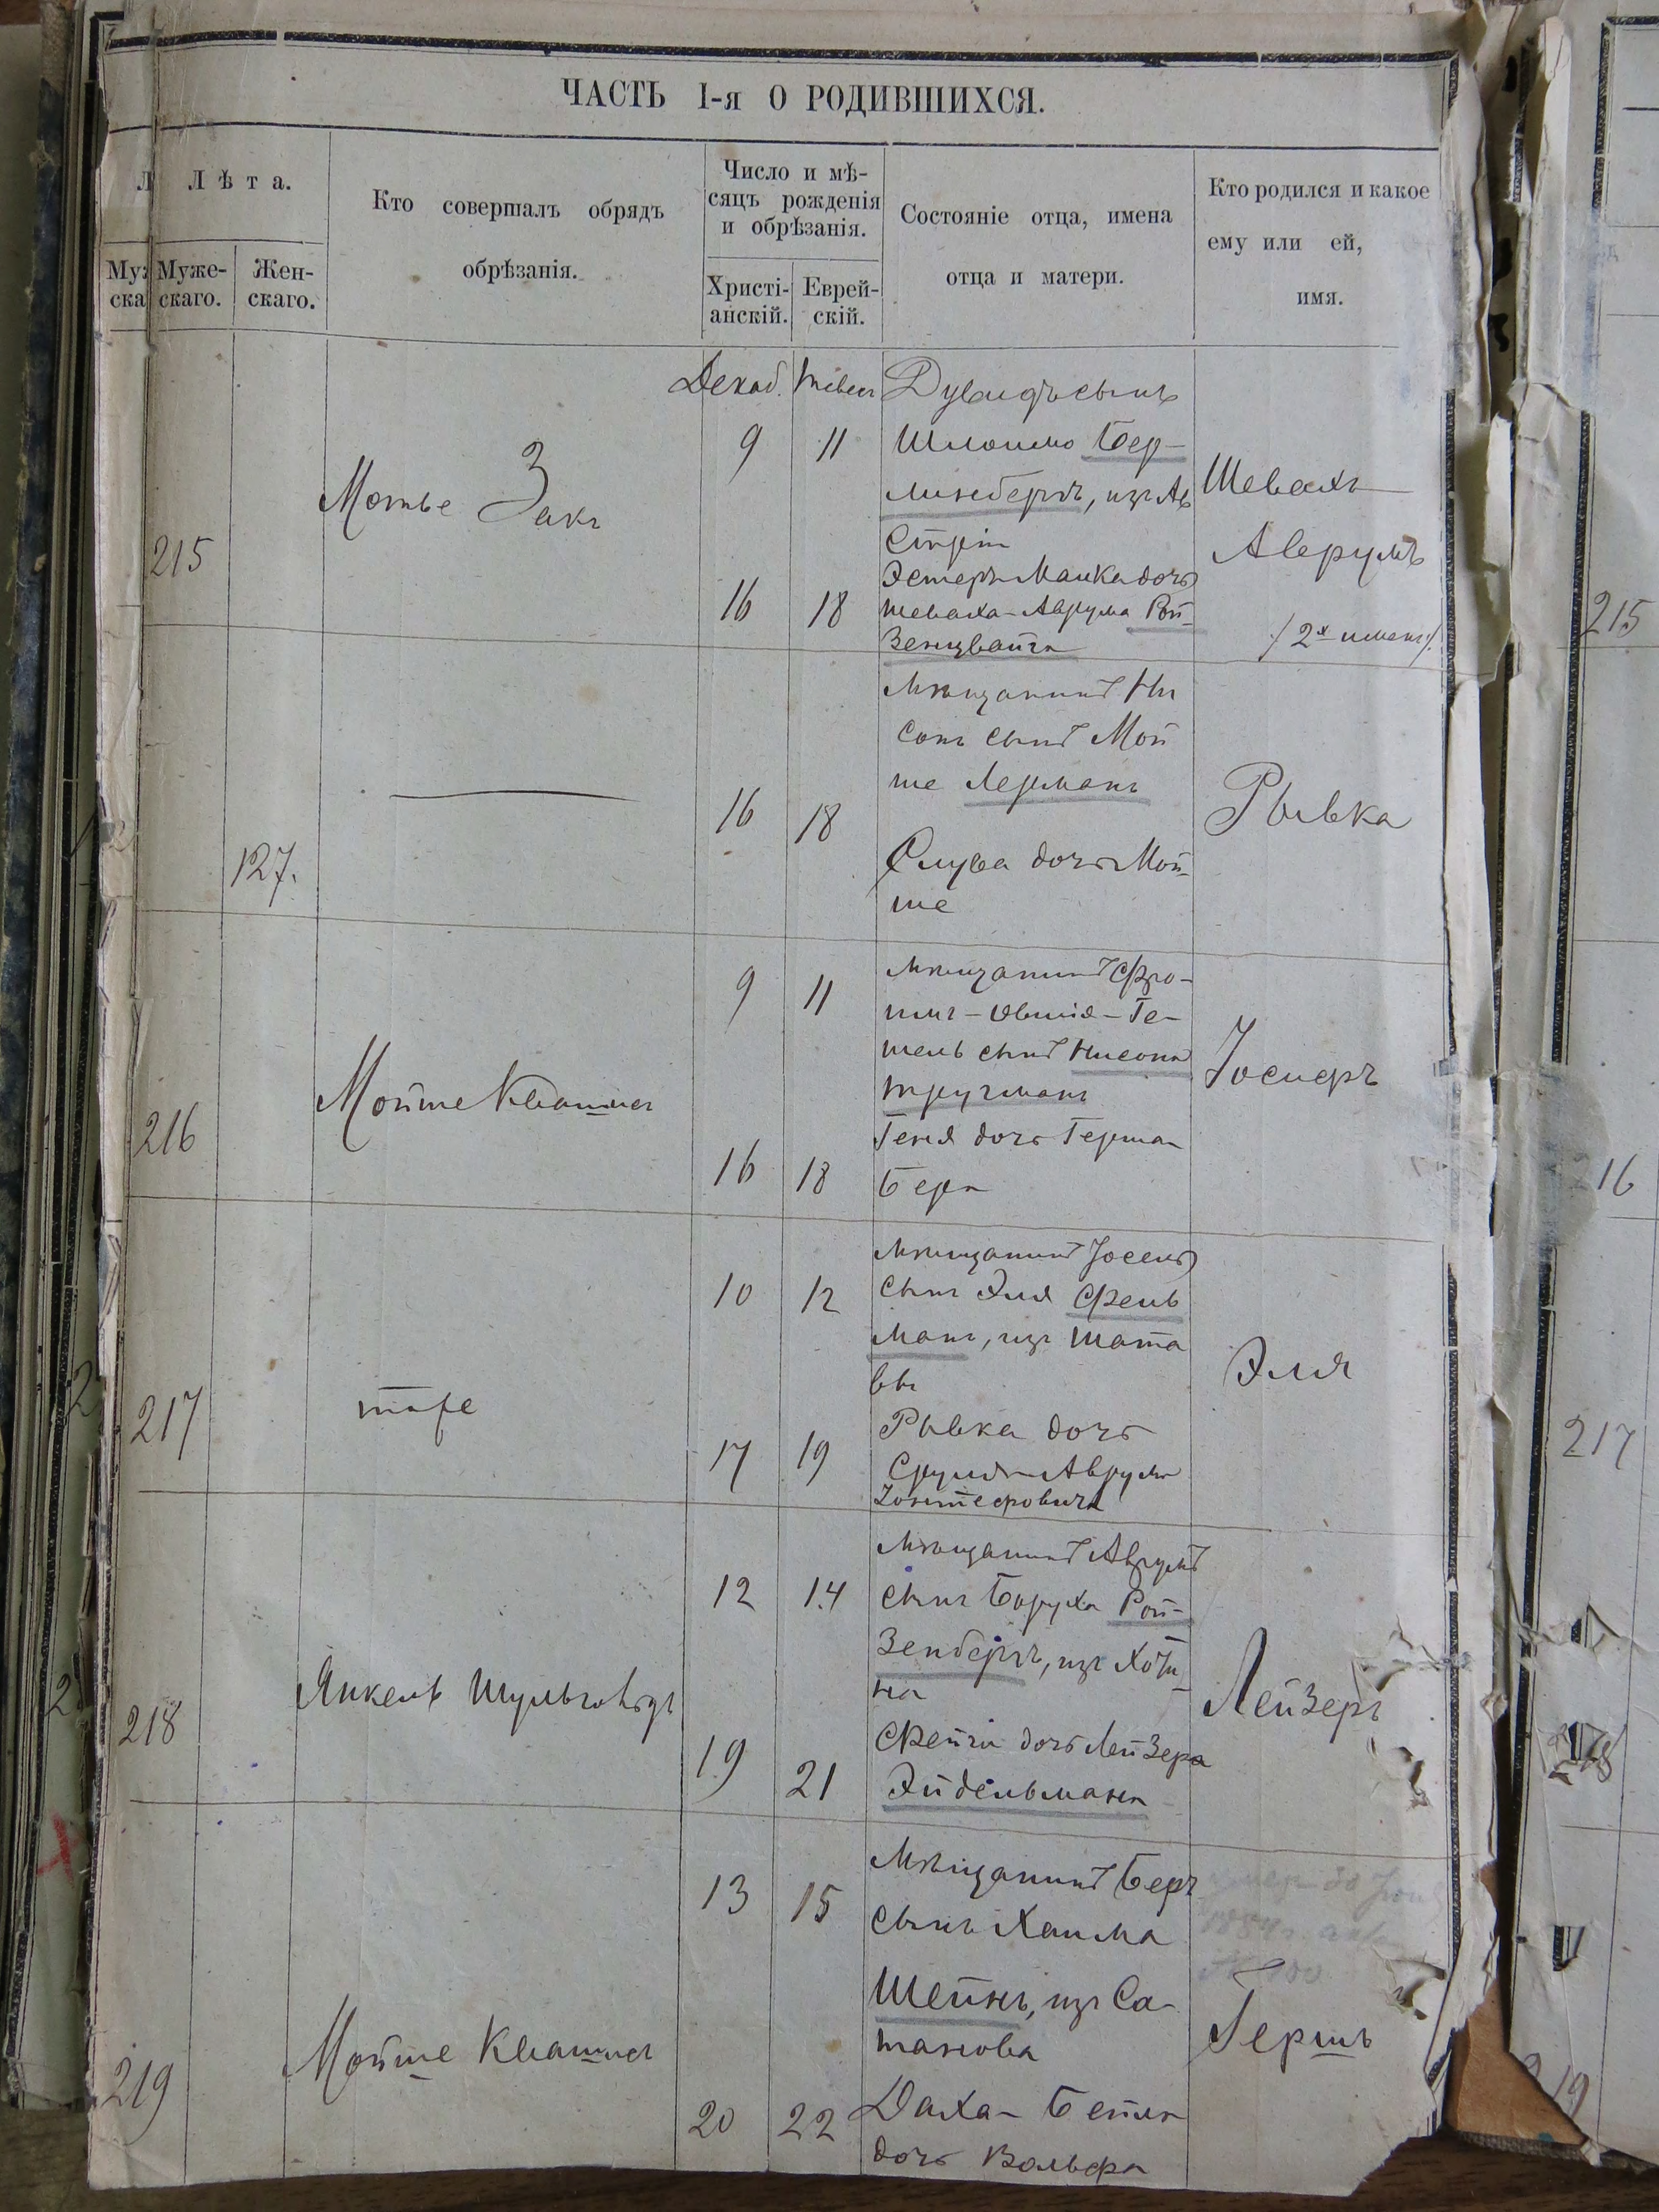 ЧАСТЬ I-я О РОДИВШИХСЯ.
Лѣта.
Муже-
скаго.
Жен-
скаго.
Кто совершалъ обрядъ
обрѣзанія.
Число и мѣ-
сяцъ рожденія
и обрѣзанія.
Христі-
анскій.
Еврей-
скій.
Состояніе отца, имена
отца и матери.
Кто родился и какое
ему или ей,
имя.
215
Мотье Закъ
Декаб. Тевет
9 11
16 18
Дувидъ сынъ
Шлоимо Бер-
линбергъ, изъ Ав
стріи
Эстеръ Малка дочь
Шеваха-Аврума Рой-
зенцвайга
Шевахъ
Аврумъ
/2х именъ/.
127.
16 18
Мѣщанинъ Ни
сонъ сынъ Мой
ше Лерманъ
Слува дочь Мой-
ше
Рывка
216
Мойше Квашна
9 11
16 18
Мѣщанинъ Фро-
имъ-Овшія-Ге-
шель сынъ Нисона
Тручманъ
Геня дочь Герша
Бера
Іосифъ
217
тоже
10 12
17 19
Мѣщанинъ Іосель
сынъ Эля Фель
манъ, изъ Шата
вы
Рывка дочь
Сруля-Аврума
Эля
218
Янкель Шульговѣдъ
12 14
19 21
Мѣщанинъ Аврумъ
сынъ Боруха Рой-
зенбергъ, изъ Хоти-
на
Фейга дочь Лейзера
Эйдельмана
Лейзеръ
219
Мойше Квашна
13 15
20 22
Мѣщанинъ Беръ
сынъ Хаима
Шейнъ, изъ Са-
танова
Даха-Бейла
дочь Вольфа
Гершъ
215
16
217
218
219